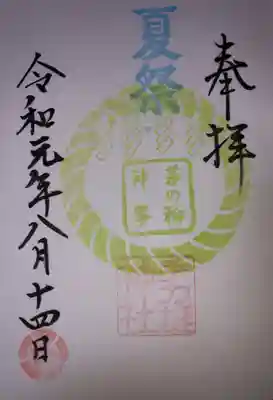 奉拝
夏祭
茅の輪
神事
令和元年八月十四日